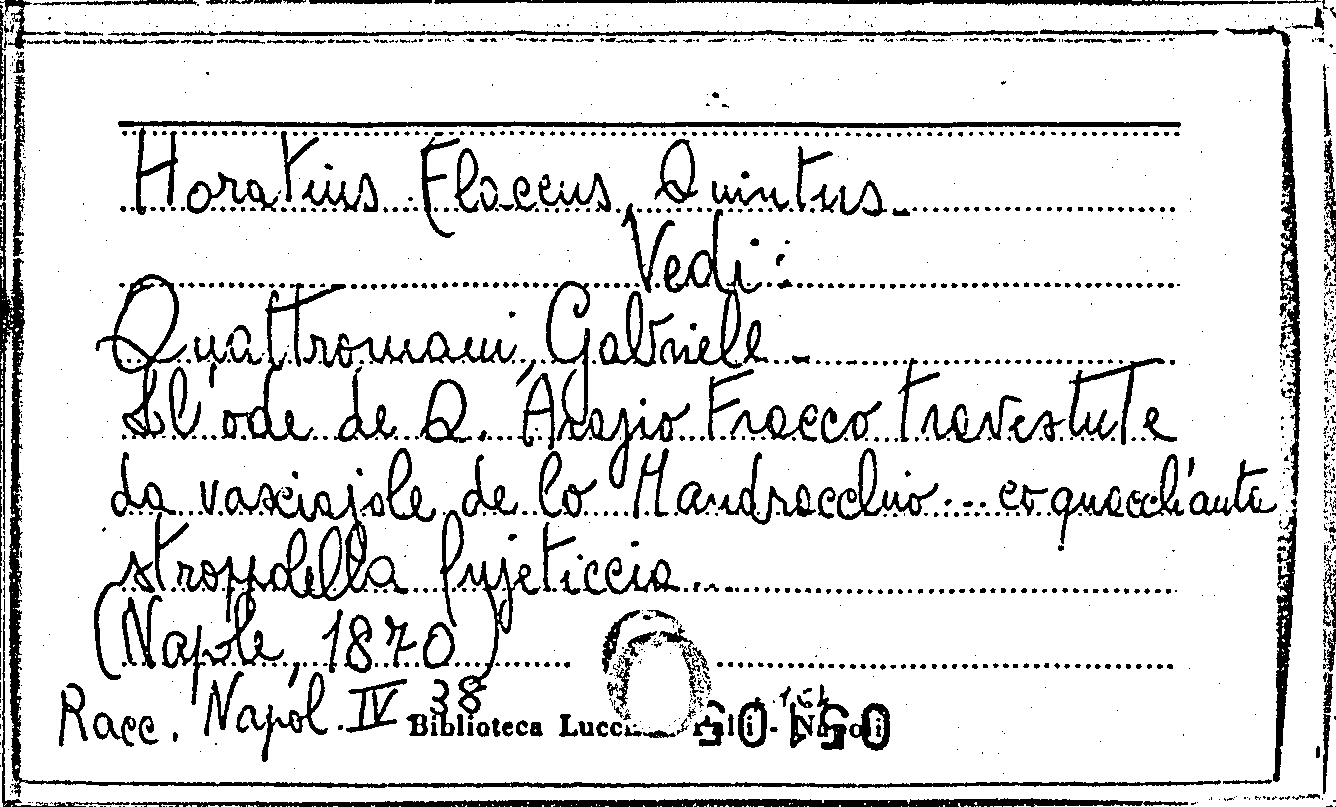 Horatius Flaccus, Quintus.
Vedi:
Quattromani, Gabriele -
Ll'ode de Q. Arazio Fracco travestute
da vasciajole de lo Mandracchio... co quacch'auta
stroppolella pujeticcia...
(Napole, 1870)
Racc. Napol. IV 38
Biblioteca Lucchesi Palli - Napoli